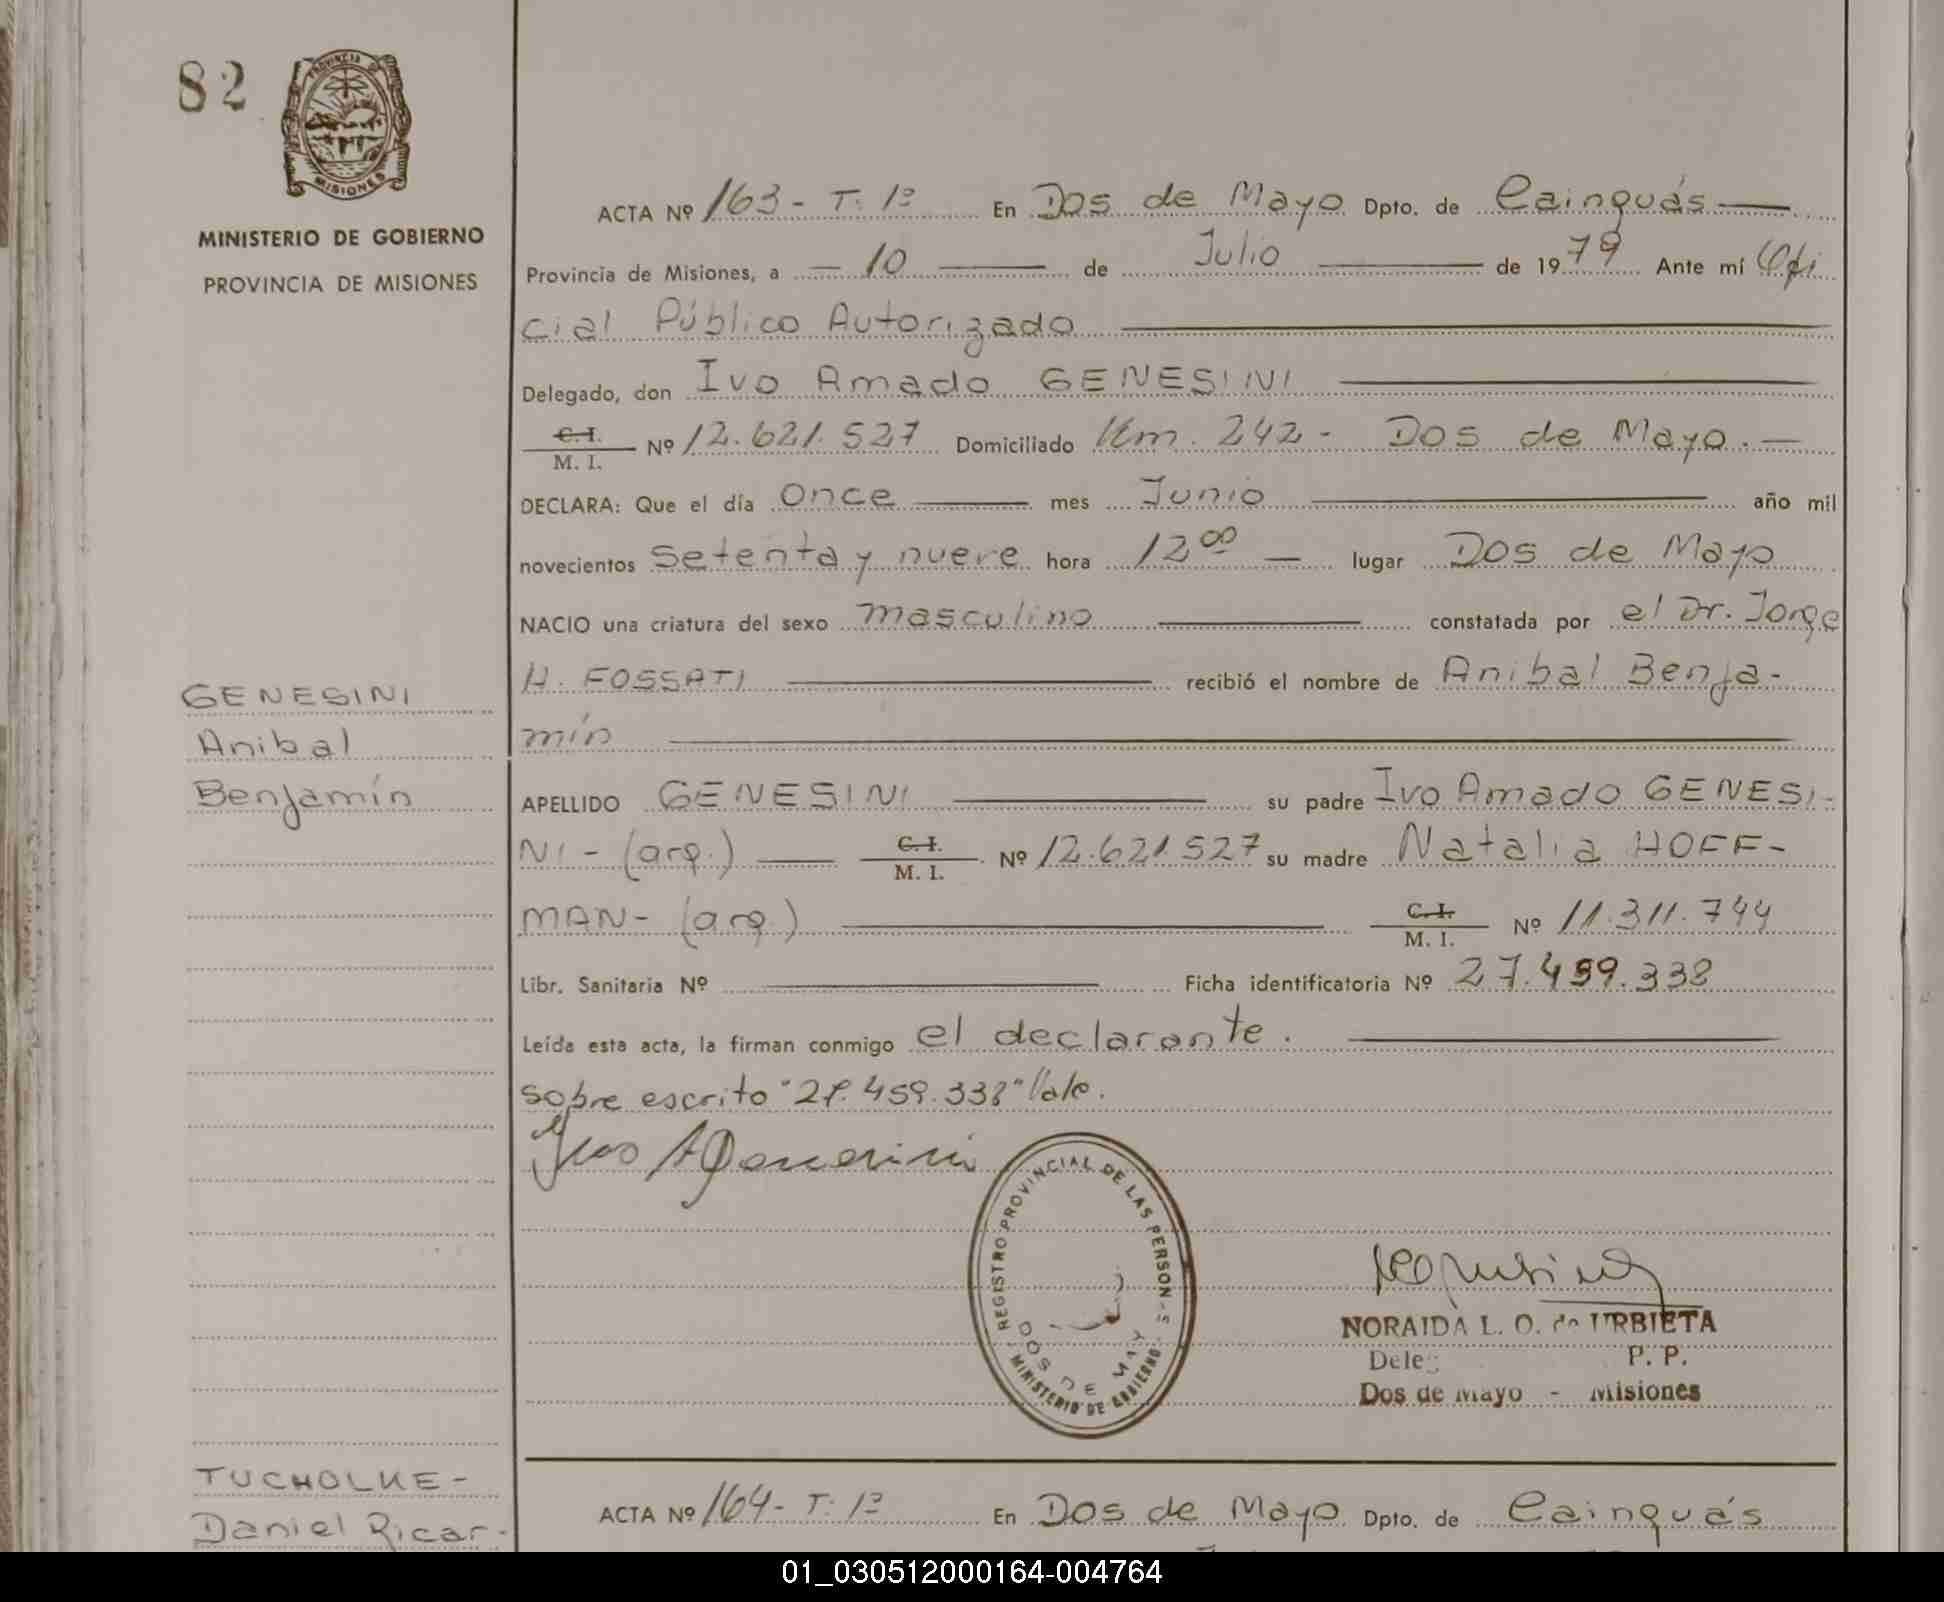 82
PROVINCIA DE
MISIONES
MINISTERIO DE GOBIERNO
PROVINCIA DE MISIONES
ACTA Nº 163- T. 1º En Dos de Mayo Dpto. de Cainguás
Provincia de Misiones, a 10 de Julio de 1979 Ante mí Ofi
cial Público Autorizado
Delegado, don Ivo Amado GENESINI
C. I.
M. I. Nº 12.621.527 Domiciliado Km. 242- Dos de Mayo.
DECLARA: Que el día once mes Junio año mil
novecientos setenta y nueve hora 12⁰⁰ lugar Dos de Mayo
NACIO una criatura del sexo masculino constatada por el Dr. Jorge
H. FOSSATI recibió el nombre de Anibal Benja-
mín
GENESINI
Anibal
Benjamín
APELLIDO GENESINI su padre Ivo Amado GENESI-
NI - (arg.) C. I. M. I. Nº 12.621.527 su madre Natalia HOFF-
MAN- (arg.) C. I. M. I. Nº 11.311.744
Libr. Sanitaria Nº Ficha identificatoria Nº 27.459.338
Leída esta acta, la firman conmigo el declarante.
sobre escrito "27.459.338" Vale.
Ivo A Genesini
REGISTRO PROVINCIAL DE LAS PERSON-S
DOS DE MAY
MINISTERIO DE GOBIERNO
NORAIDA L. O. de URBIETA
Dele P. P.
Dos de Mayo - Misiones
TUCHOLKE-
Daniel Ricar-
ACTA Nº 164- T. 1º En Dos de Mayo Dpto. de Cainguás
01_030512000164-004764